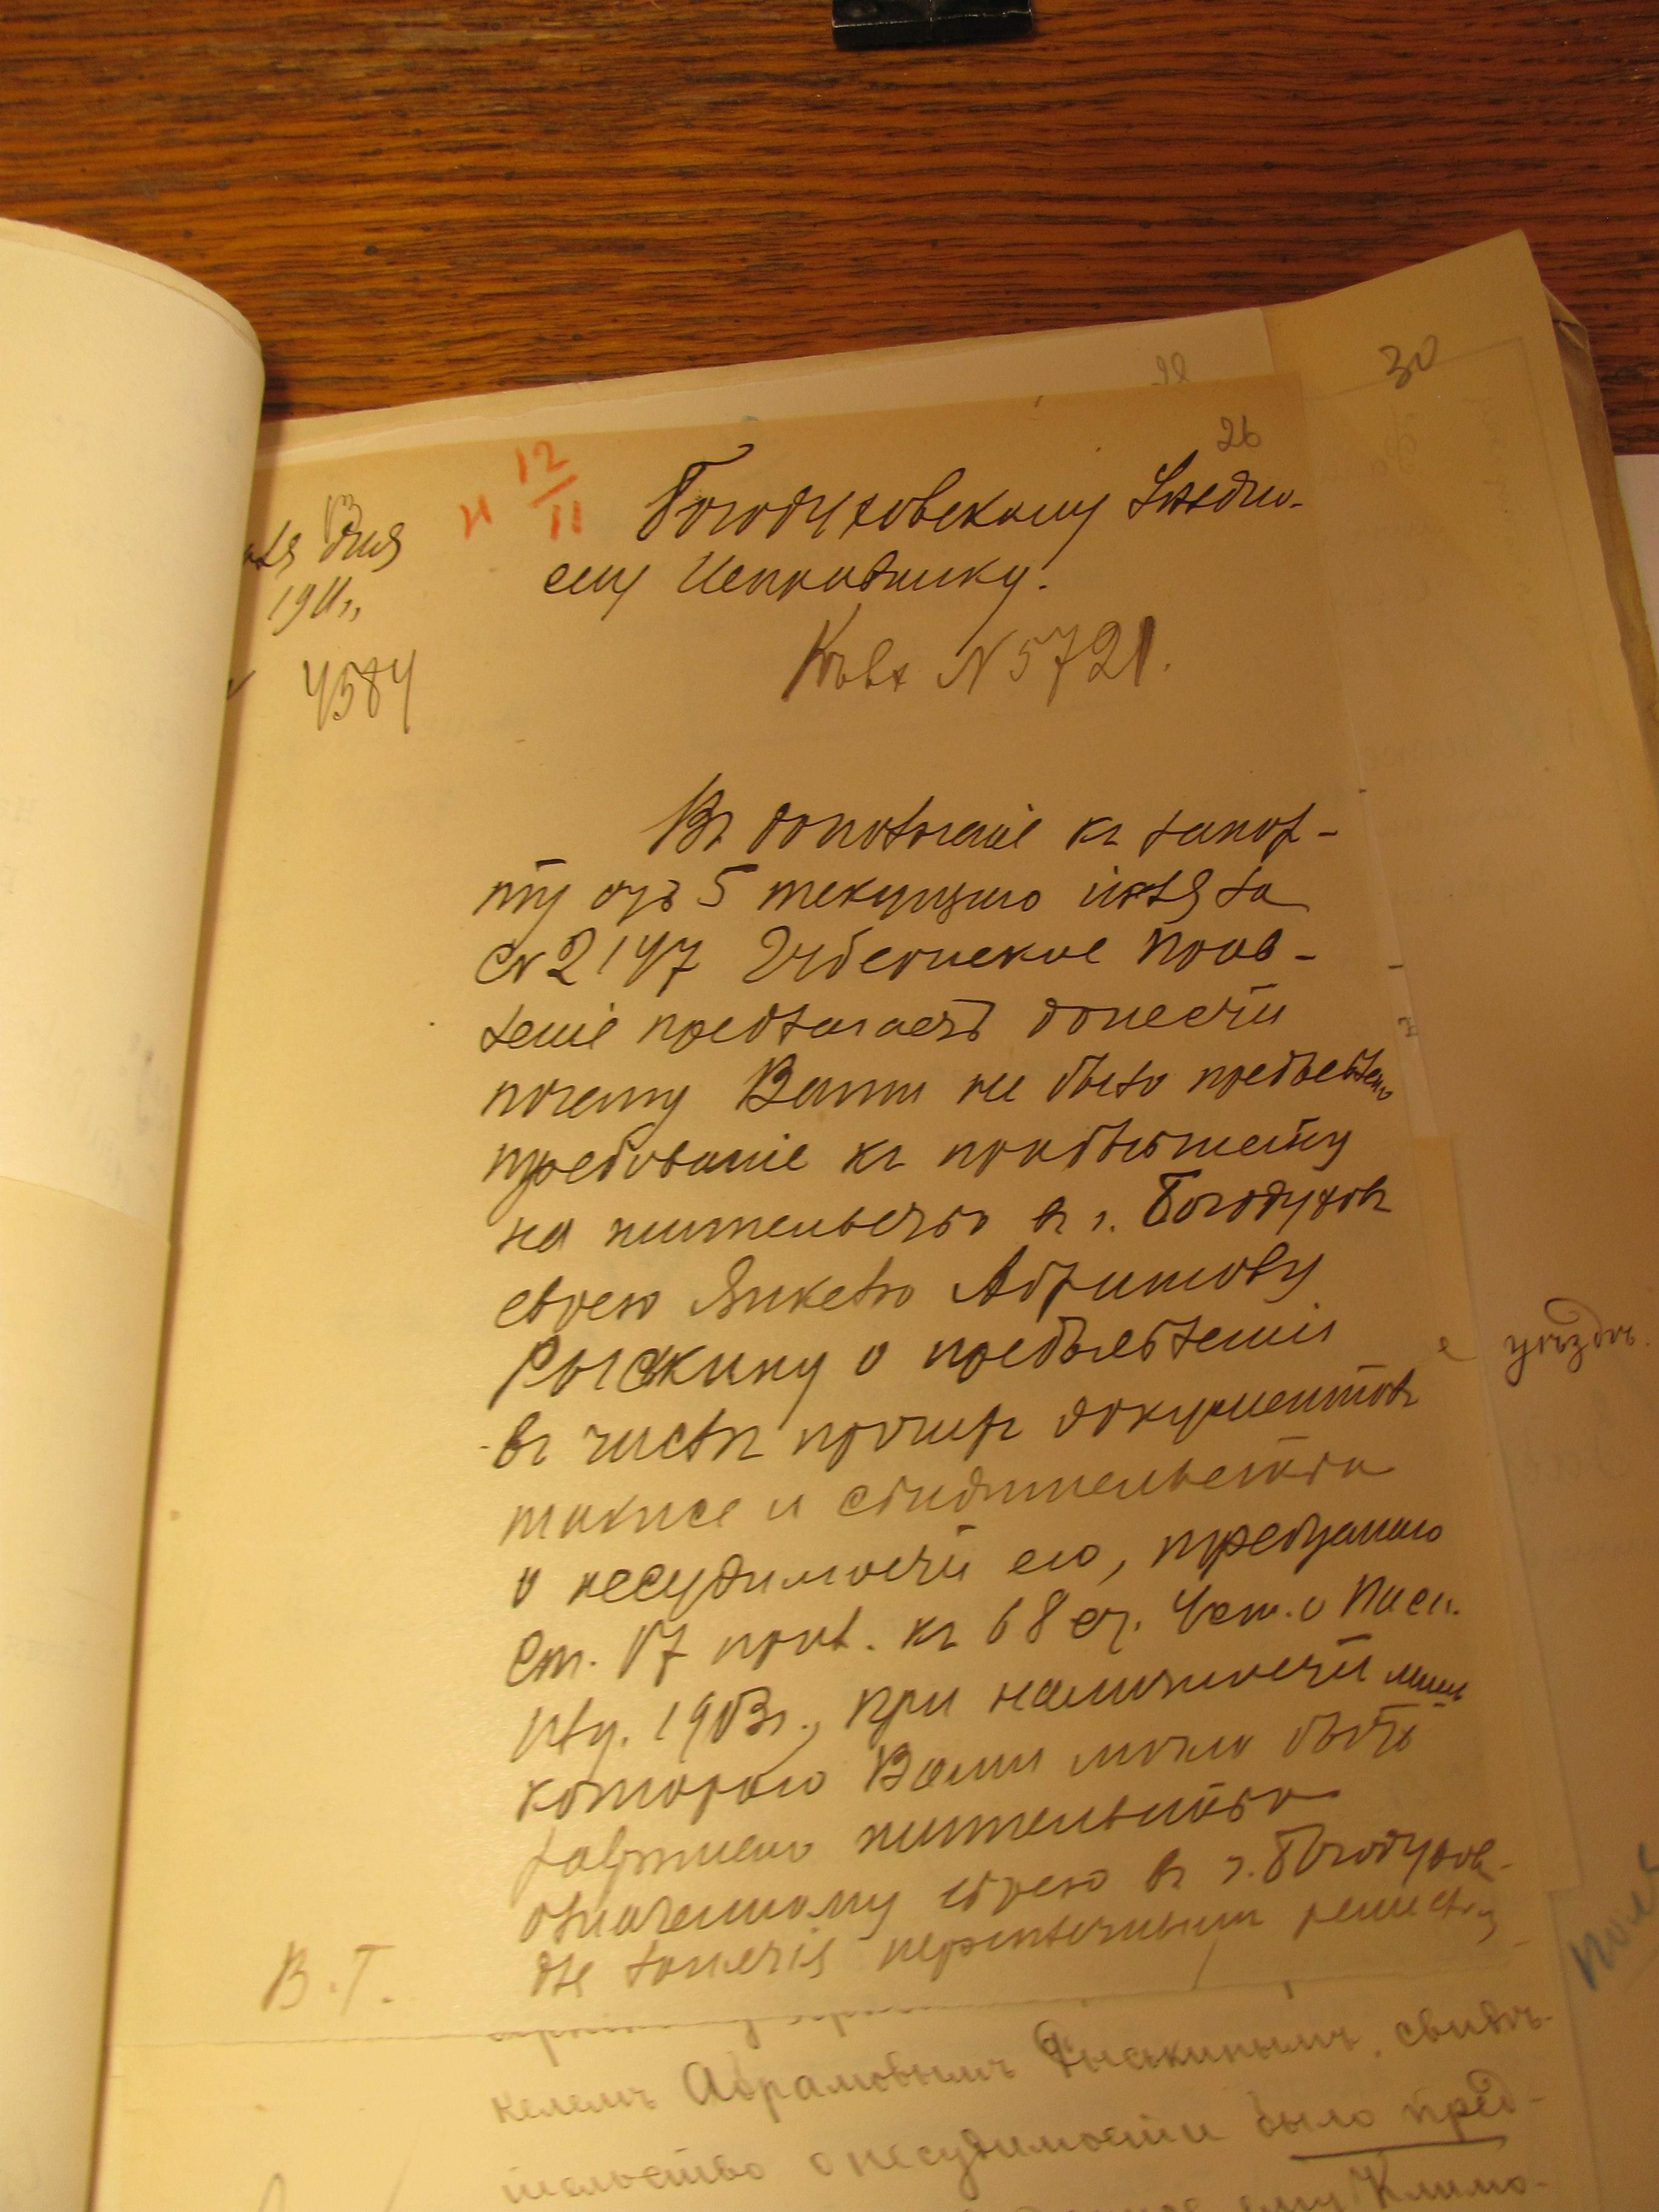 28
30
26
12
11
Богодуховскому Уѣздно-
му Исправнику.
іюля дня
1911 г.
4584
Къ вх № 5721.
Въ дополненіе къ рапор-
ту отъ 5 текущаго іюля за
№ 2147 Губернское Прав-
леніе предлагаетъ донести
почему Вами не было предъявлено
требованіе къ
на жительство въ г. Богодуховѣ
еврею Янкелю Абрамову
Рыскину о предъявленіи
въ числѣ прочихъ документовъ
также и свидѣтельства
о несудимости его, требуемаго
ст. 17 прил. къ 68 ст. Уст. о Пасп.
изд. 1903 г., при наличности лишь
котораго Вами могло быть
разрѣшено жительство
означенному еврею въ г. Богодухо-
В. Т.
келемъ Абрамовымъ Рыскинымъ, свидѣ-
тельство о несудимости было пред-
ему Климо-
уѣздѣ.